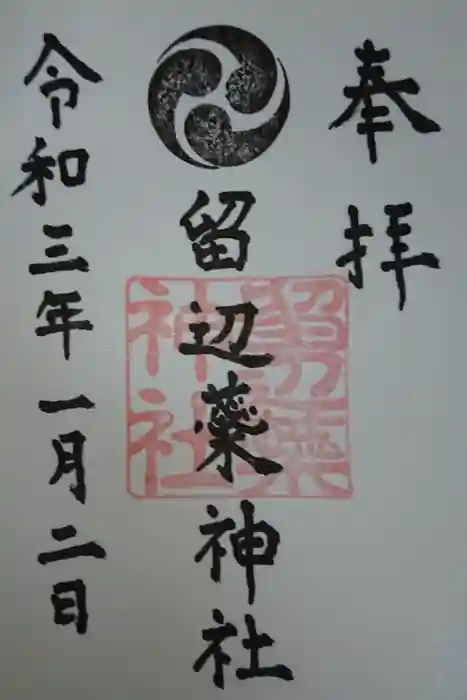 奉拝
留辺蘂神社
神社
令和三年一月二日